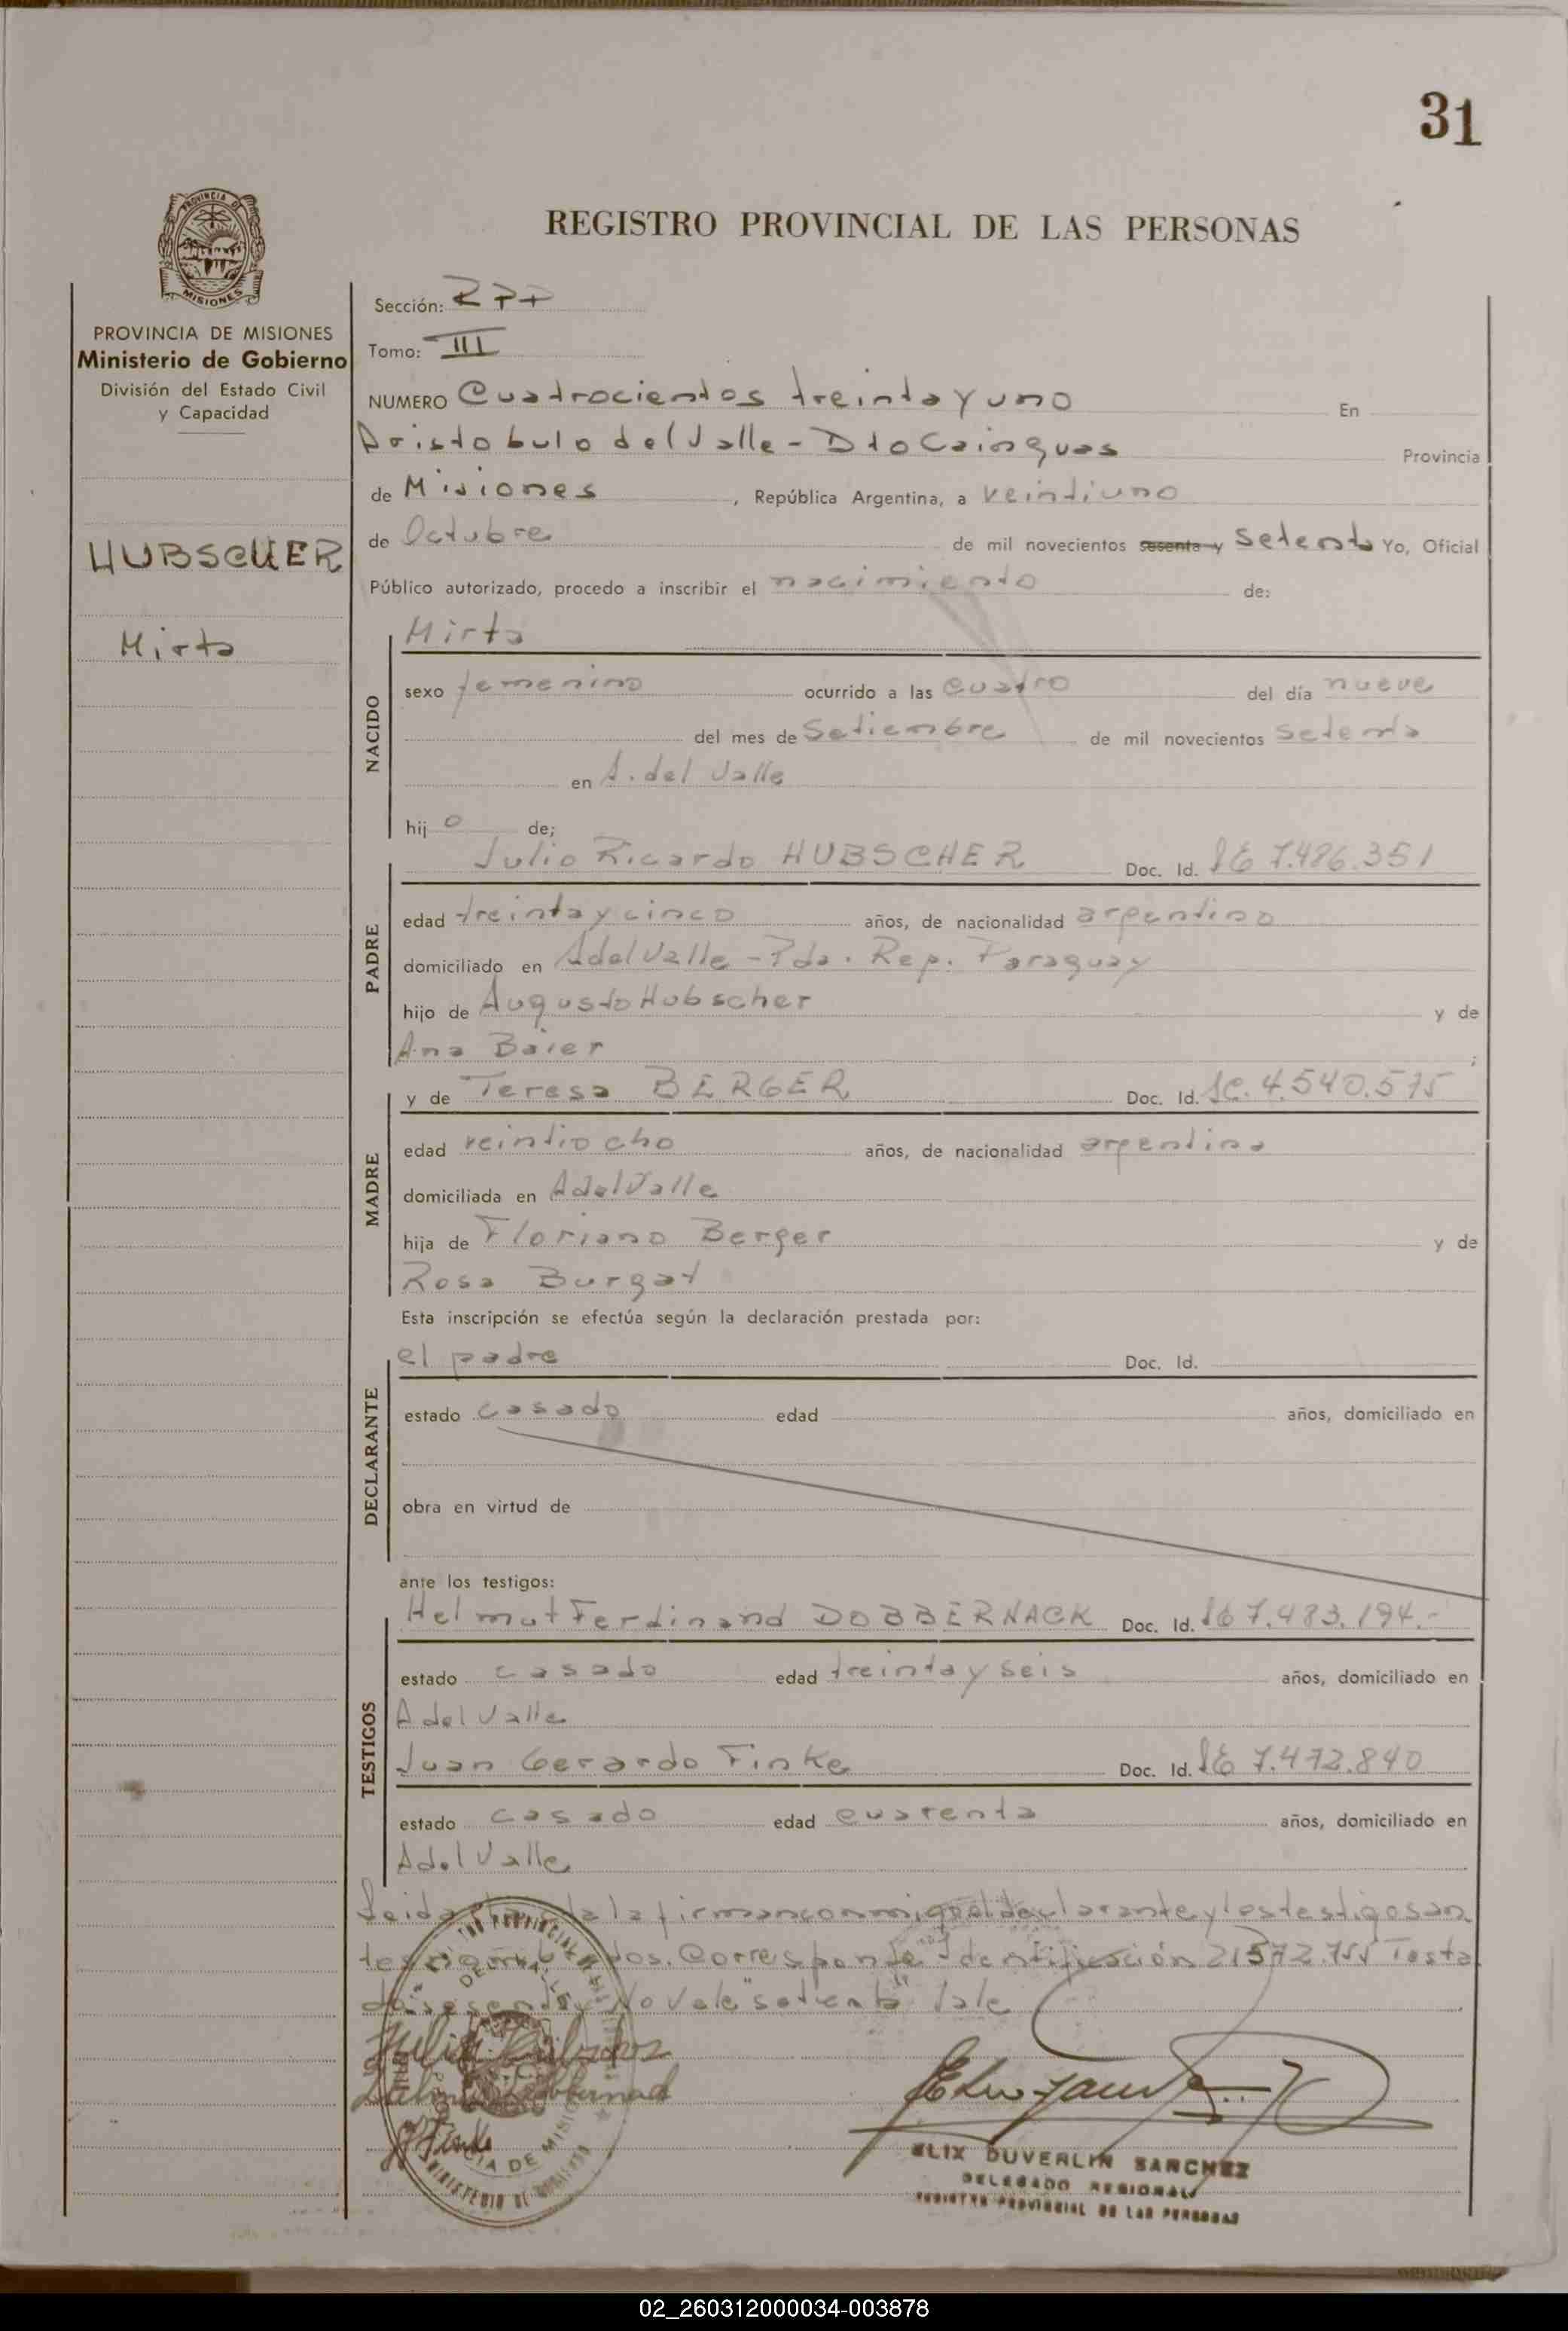 31
REGISTRO PROVINCIAL DE LAS PERSONAS
PROVINCIA DE
MISIONES
PROVINCIA DE MISIONES
Ministerio de Gobierno
División del Estado Civil
y Capacidad
HUBSCHER
Mirta
Sección: RPP
Tomo: III
NUMERO Cuatrocientos treinta y uno En
Aristobulo del Valle - Dto Cainguas Provincia
de Misiones, República Argentina, a veintiuno
de Octubre de mil novecientos sesenta y Setenta Yo, Oficial
Público autorizado, procedo a inscribir el nacimiento de:
NACIDO
Mirta
sexo femenino ocurrido a las cuatro del día nueve
del mes de Setiembre de mil novecientos setenta
en A. del Valle
hij o de;
PADRE
Julio Ricardo HUBSCHER Doc. Id. LE 7.486.351
edad treinta y cinco años, de nacionalidad argentino
domiciliado en A del Valle - Pda. Rep. Paraguay
hijo de Augusto Hubscher y de
Ana Baier ;
MADRE
y de Teresa BERGER Doc. Id. LC. 4.540.575
edad veintiocho años, de nacionalidad argentina
domiciliada en A del Valle
hija de Floriano Berger y de
Rosa Burgat
Esta inscripción se efectúa según la declaración prestada por:
DECLARANTE
el padre Doc. Id.
estado casado edad años, domiciliado en
obra en virtud de
ante los testigos:
TESTIGOS
Helmut Ferdinand DOBBERNACK Doc. Id. LE 7.483.194.-
estado casado edad treinta y seis años, domiciliado en
A del Valle
Juan Gerardo Finke Doc. Id. LE 7.472.840
estado casado edad cuarenta años, domiciliado en
A del Valle
Leida la firman conmigo el declarante y los testigos an
tes dos. Corresponde Identificación 21572.755 Testa
do "sesenta y" No Vale "setenta" Vale
ELIX DUVERLIN SANCHEZ
DELEGADO REGIONAL
REGISTRO PROVINCIAL DE LAS PERSONAS
02_260312000034-003878